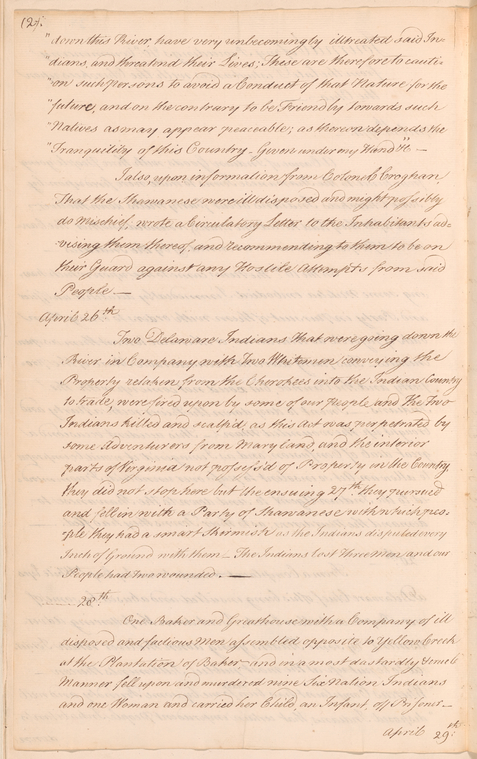 (2).
"down this River, have very unbecomingly illtreated said In-
"dians, and threatned their Lives; These are therefore to cauti-
"on such persons to avoid a Conduct of that Nature for the
"future, and on the contrary to be Friendly towards such
"Natives as may appear peaceable; as thereon depends the
"Tranquility of this Country - Given under my Hand &c" -
I also, upon information from Colonel Croghan,
That the Shawanese were ill disposed and might possibly
do Mischief, wrote a Circulatory Letter to the Inhabitants ad-
vising them thereof, and recommending to them to be on
their Guard against any Hostile Attempts from said
People —
April 26th
Two Delaware Indians that were going down the
River in Company with Two Whitemen conveying the
Property retaken from the Cherokees into the Indian Country
to trade, were fired upon by some of our People and the Two
Indians killed and scalp'd; as this Act was perpetrated by
some Adventurers from Maryland, and the interior
parts of Virginia not possess'd of Property in the Country,
they did not stop here but the ensuing 27th they pursued
and fell in with a Party of Shawanese with which peo-
ple they had a smart Skermish as the Indians disputed every
Inch of Ground with them - The Indians lost Three Men and our
People had two wounded. —
28th
One Baker and Greathouse with a Company of ill
disposed and factious Men assembled opposite to Yellow Creek
at the Plantation of Baker and in a most dastardly
Manner fell upon and murdered nine Six Nation Indians
and one Woman and carried her Child, an Infant, off
April 29th: